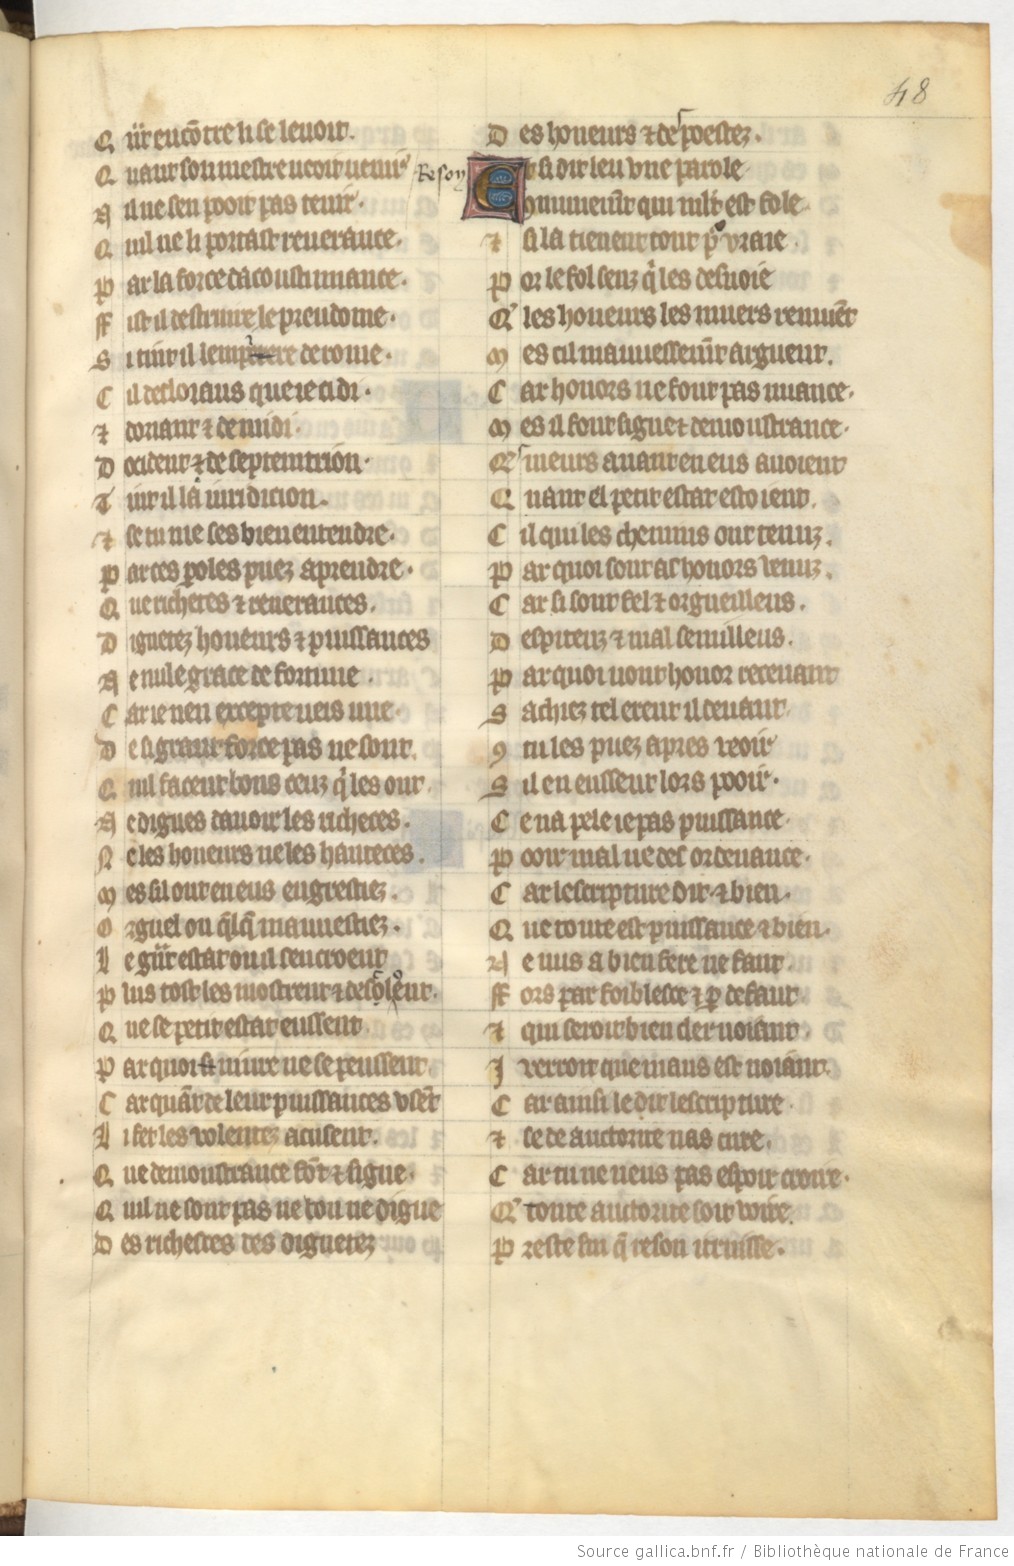 48
Q ūr encōtre li se levoit.
Q uant son mestre veoit venir
N il ne sen pooit pas tenir.
Q uil ne li portast reverance.
P ar la force dacoustumance.
ff ist il destruire le preudome.
S i tint il lempire de rome.
C il desloiaus que ie ci di.
⁊ doriant ⁊ de midi.
D occident ⁊ de septentrion.
T int il la iuridicion.
⁊ se tu me ses bien entendre.
P ar ces ꝑoles puez aprendre.
Q ue richeces ⁊ reverances.
D ignetez honeurs ⁊ puissances
N e nule grace de fortune.
C ar ie nen excepte neis une.
D e si grant force pas ne sont.
Q uil facent bons ceuz q̄ les ont.
N e dignes davoir les richeces.
N e les honeurs ne les hauteces.
M es sil ont en eus engrestiez.
O rguel ou q̄lq̄ mauvestiez.
L e gn̄t estat ou il sencroent
P lus tost les mostrent ⁊ descloent.
Q ue se petit estat eussent
P ar quoi nuire ne se peussent.
C ar quāt de leur puissances usēt
L i fet les volentez acusent.
Q ue demoustrance fōt ⁊ signe.
Q uil ne sont pas ne bon ne digne
D es richesces des dignetez
D es honeurs ⁊ des poestez.
Resoy
E t si dit leu vne parole
C ommunemēt qui mlt est fole
⁊ si la tienent tout pʳ vraie.
P or le fol senz q̄ les desvoie
Qʼ les honeurs les muers remuēt
M es cil mauvessemēt arguent.
C ar honors ne font pas muance.
M es il font signe ⁊ demoustrance.
Qʼ meurs avant en eus avoient
Q uant el petit estat estoient.
C il qui les chemins ont tenuz.
P ar quoi sont as honors venuz.
C ar si sont fel ⁊ orgueilleus.
D espiteuz ⁊ mal semilleus.
P ar quoi vont honor recevant
S achiez tel erent il devant.
9 tu les puez apres veoir
S il en eussent lors pooir.
C e napele ie pas puissance.
P ooir mal ne desordenance.
C ar lescripture dit ⁊ bien.
Q ue toute est puissance ⁊ bien.
N e nus a bien fere ne faut.
ff ors par foiblesce ⁊ ꝑ defaut
⁊ qui seroit bien cler voiant.
I verroit que maus est noiant.
C ar ainsi le dit lescripture.
⁊ se de auctorite nas cure.
C ar tu ne veus pas espoir croire.
Qʼ toute auctorite soit voire.
P reste sui q̄ reson i truisse.
Source gallica.bnf.fr / Bibliothèque nationale de France